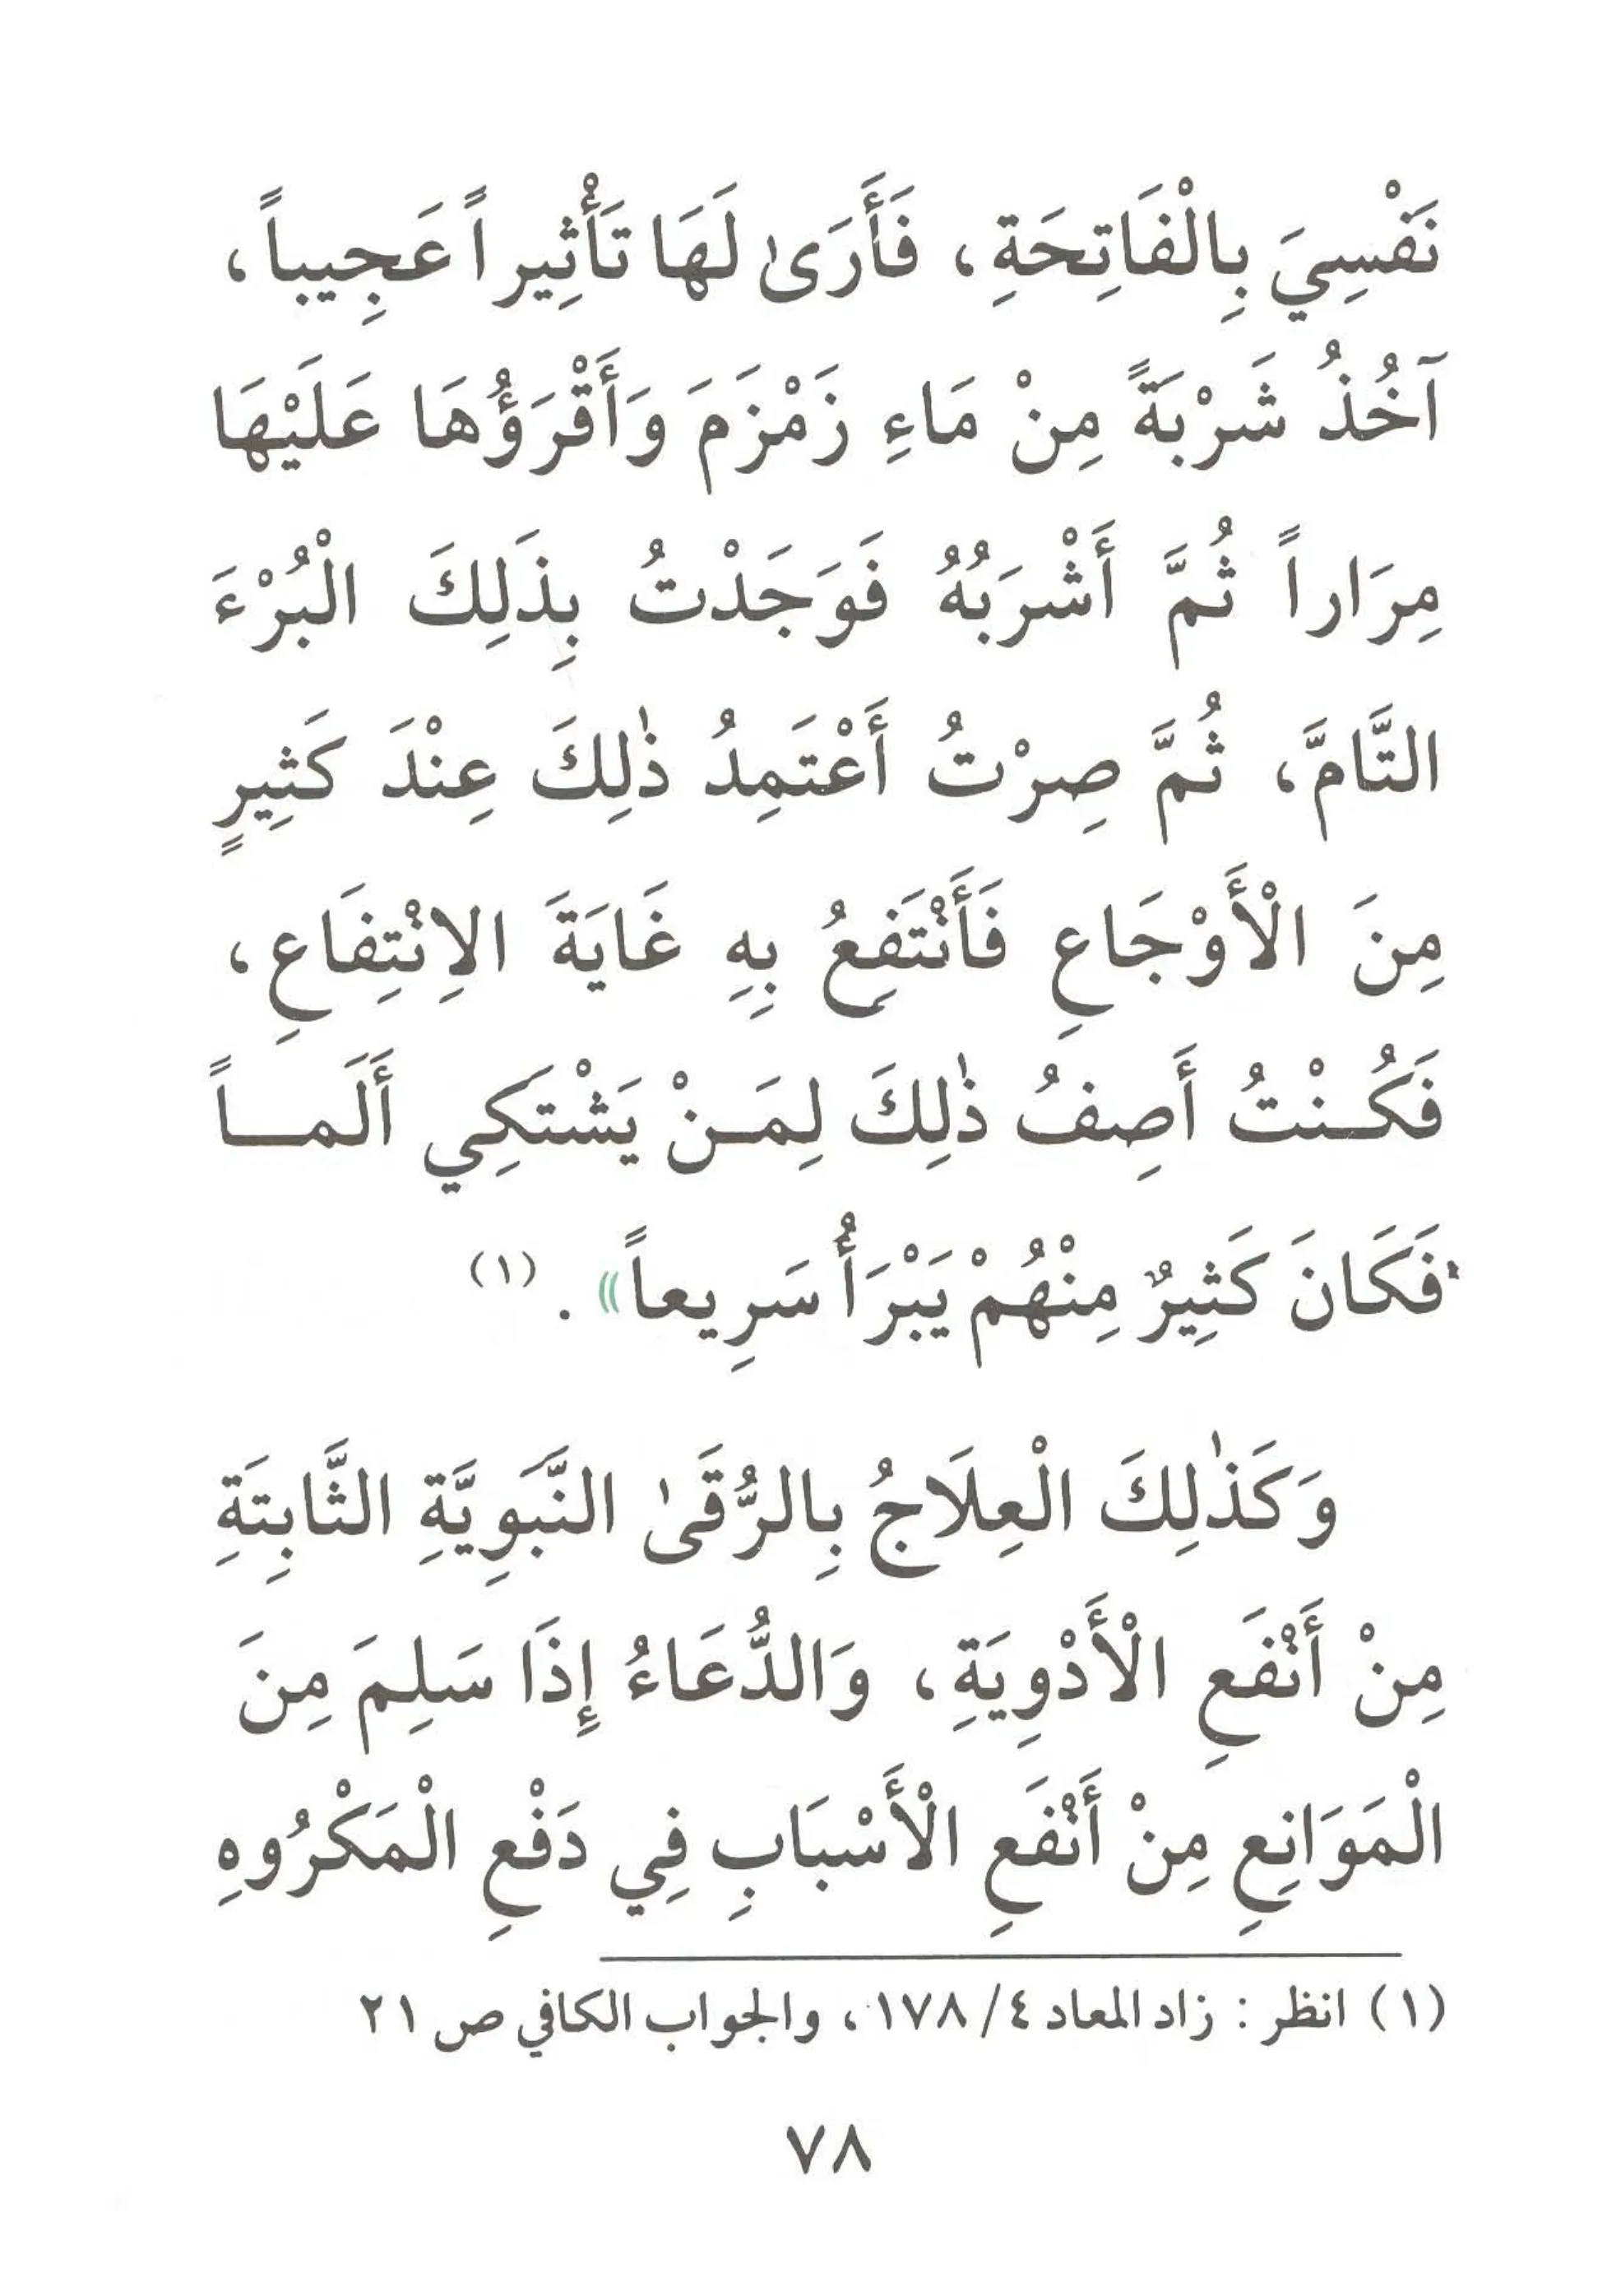 نَفْسِيَ بِالْفَاتِحَةِ، فَأَرَىٰ لَهَا تَأْثِيراً عَجِيباً،
آخُذُ شَرْبَةً مِنْ مَاءِ زَمْزَمَ وَأَقْرَؤُهَا عَلَيْهَا
مِرَاراً ثُمَّ أَشْرَبُهُ فَوَجَدْتُ بِذَلِكَ الْبُرْءَ
التَّامَّ، ثُمَّ صِرْتُ أَعْتَمِدُ ذٰلِكَ عِنْدَ كَثِيرٍ
مِنَ الْأَوْجَاعِ فَأَنْتَفِعُ بِهِ غَايَةَ الِانْتِفَاعِ،
فَكُنْتُ أَصِفُ ذٰلِكَ لِمَنْ يَشْتَكِي أَلَماً
فَكَانَ كَثِيرٌ مِنْهُمْ يَبْرَأُ سَرِيعاً» . (١)
وَكَذٰلِكَ الْعِلَاجُ بِالرُّقَىٰ النَّبَوِيَّةِ الثَّابِتَةِ
مِنْ أَنْفَعِ الْأَدْوِيَةِ، وَالدُّعَاءُ إِذَا سَلِمَ مِنَ
الْمَوَانِعِ مِنْ أَنْفَعِ الْأَسْبَابِ فِي دَفْعِ الْمَكْرُوهِ
(١) انظر : زاد المعاد ٤/ ١٧٨، والجواب الكافي ص ٢١
٧٨